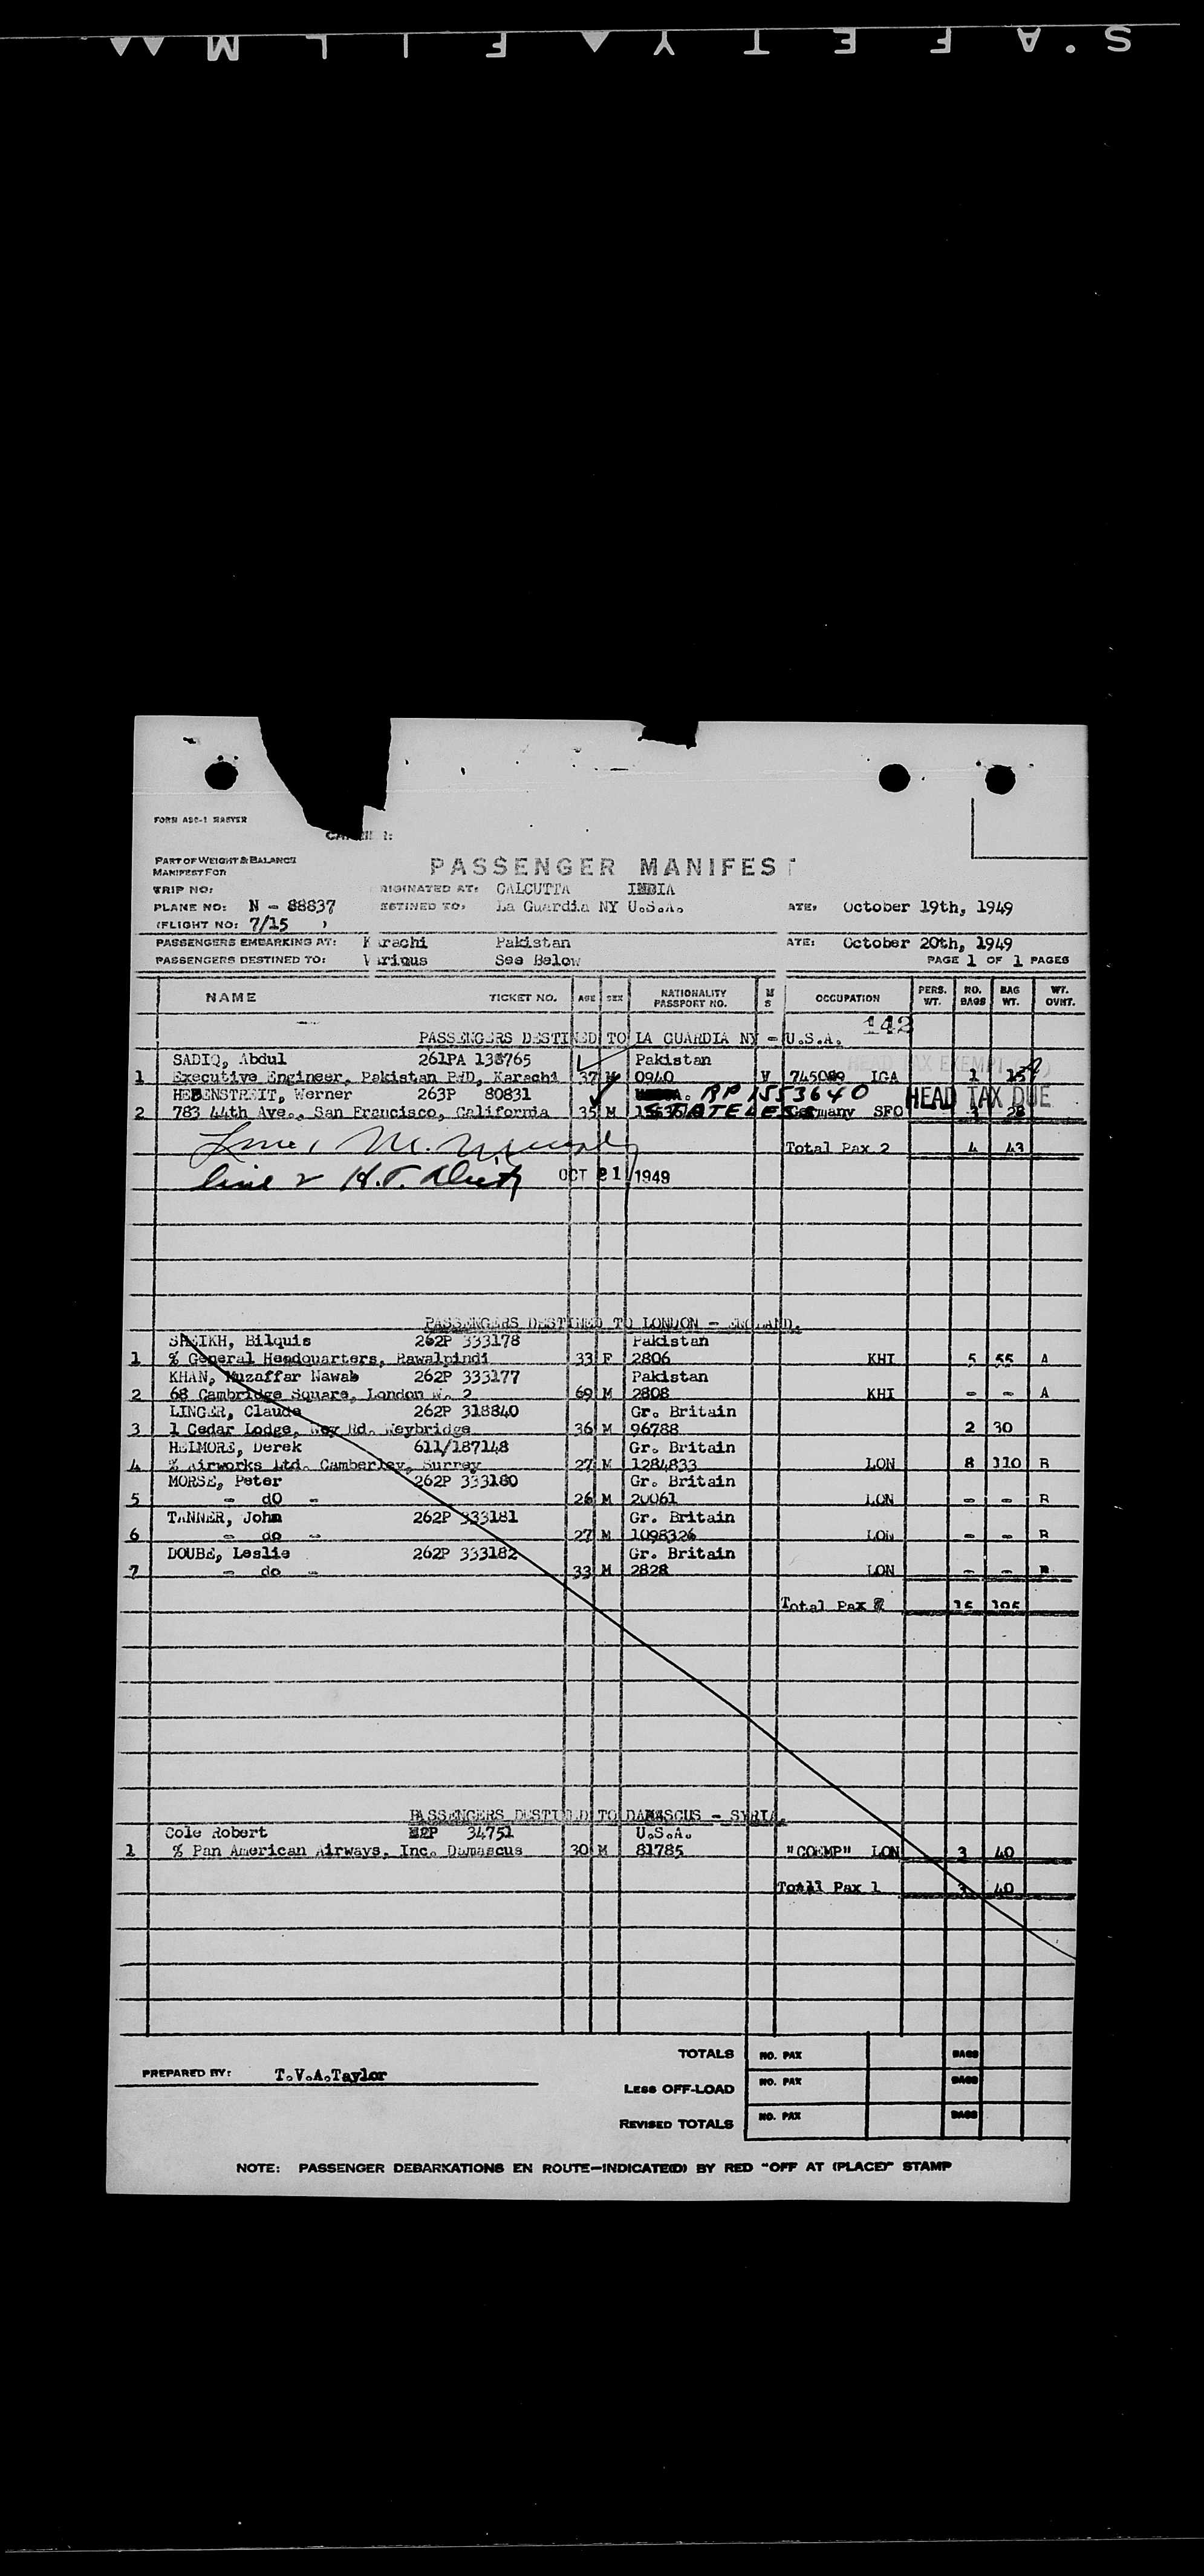 S.AFETY FILM
FORM ADC-1 MASTER
PART OF WEIGHT & BALANCE
MANIFEST FOR
PASSENGER MANIFEST
TRIP NO: RIGINATED AT: CALCUTTA INDIA
PLANE NO: N - 88837 ESTINED TO: La Guardia NY U.S.A. ATE: October 19th, 1949
(FLIGHT NO: 7/15 )
PASSENGERS EMBARKING AT: Karachi Pakistan ATE: October 20th, 1949
PASSENGERS DESTINED TO: Various See Below PAGE 1 OF 1 PAGES
NAME TICKET NO. AGE SEX NATIONALITY PASSPORT NO. M S OCCUPATION PERS. WT. NO. BAGS BAG WT. WT. OVNT.
142
PASSENGERS DESTINED TO LA GUARDIA NY - U.S.A.
HEAD TAX EXEMPT
SADIQ, Abdul 261PA 138765 Pakistan
1 Executive Engineer, Pakistan PWD, Karachi 37 M 0940 V 745089 LGA 1 15
HEBENSTREIT, Werner 263P 80831 RP 1553640 HEAD TAX DUE
2 783 44th Ave., San Francisco, California 35 M STATELESS Germany SFO 3 28
Line 1 M. Murphy Total Pax 2 4 43
line 2 H.T. OCT 21 1949
PASSENGERS DESTINED TO LONDON - ENGLAND.
SHEIKH, Bilquis 262P 333178 Pakistan
1 % General Headquarters, Rawalpindi 33 F 2806 KHI 5 55 A
KHAN, Muzaffar Nawab 262P 333177 Pakistan
2 68 Cambridge Square, London W. 2 69 M 2808 KHI - - A
LINGER, Claude 262P 318840 Gr. Britain
3 1 Cedar Lodge, Wey Rd. Weybridge 36 M 96788 2 30
HELMORE, Derek 611/187148 Gr. Britain
4 % Airworks Ltd. Camberley, Surrey 27 M 1284833 LON 8 110 B
MORSE, Peter 262P 333180 Gr. Britain
5 - dO - 26 M 20061 LON - - B
TANNER, John 262P 333181 Gr. Britain
6 - do - 27 M 1098326 LON - - B
DOUBE, Leslie 262P 333182 Gr. Britain
7 - do - 33 M 2828 LON - - B
Total Pax 7 15 195
PASSENGERS DESTINED TO DAMASCUS - SYRIA.
Cole Robert 34751 U.S.A.
1 % Pan American Airways, Inc. Damascus 30 M 81785 "COEMP" LON 3 40
Total Pax 1 3 40
TOTALS NO. PAX BAGS
PREPARED BY: T.V.A.Taylor
LESS OFF-LOAD NO. PAX BAGS
REVISED TOTALS NO. PAX BAGS
NOTE: PASSENGER DEBARKATIONS EN ROUTE—INDICATE(D) BY RED "OFF AT (PLACE)" STAMP